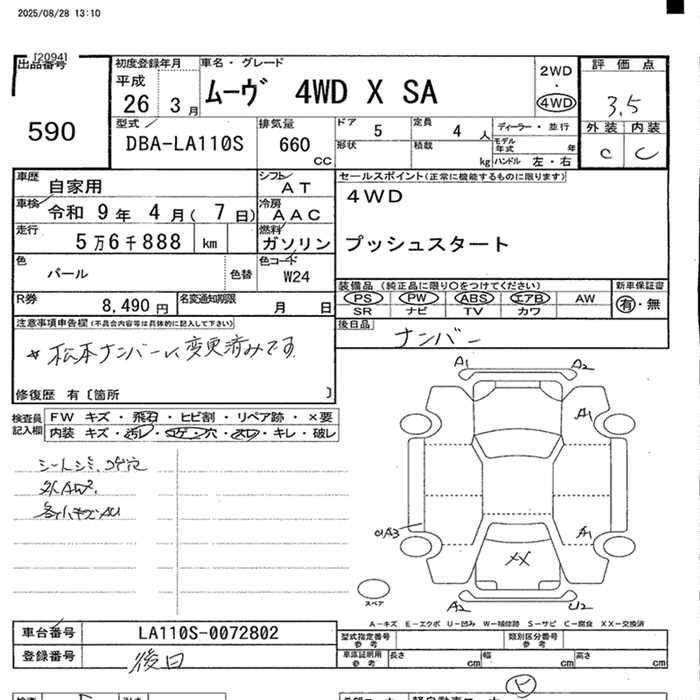 2025/08/28 13:10
[2094]
出品番号
590
初度登録年月
平成
26 3月
車名・グレード
ムーヴ 4WD X SA
2WD
・
4WD
評価点
3.5
外装 内装
C C
型式
DBA-LA110S
排気量
660
CC
ドア
5
定員
4 人
形状
積載
kg
ディーラー・並行
モデル
年式 年
ハンドル 左・右
車歴
自家用
車検
令和 9年 4月( 7日)
走行
5万6千888 km
色
パール
色替
シフト
AT
冷房
AAC
燃料
ガソリン
色コード
W24
R券
8,490 円
名変通知期限
月 日
セールスポイント(正常に機能するものに限ります)
4WD
プッシュスタート
装備品 (純正品に限り○をつけてください)
PS PW ABS エアB AW
SR ナビ TV カワ
新車保証書
有・無
後日品
ナンバー
注意事項申告欄(不具合内容等は具体的に記入して下さい)
* 松本ナンバーに変更済みです
修復歴 有〔箇所 〕
検査員
記入欄
FW キズ・飛石・ヒビ割・リペア跡・×要
内装 キズ・汚レ・コゲ穴・スレ・キレ・破レ
シートシミ、コゲ穴
A1 A2
A1
A1
A3
XX
A2 U2
スペア
A-キズ E-エクボ U-凹み W-補修跡 S-サビ C-腐食 XX-交換済
車台番号
LA110S-0072802
登録番号
後日
型式指定番号
参考
類別区分番号
参考
車庫証明用
参考
長さ cm
幅 cm
高さ cm